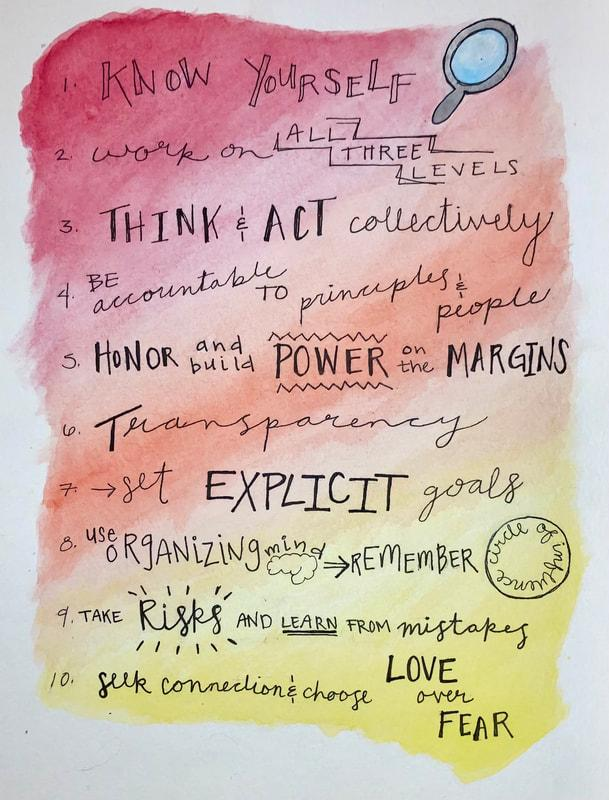 1. KNOW YOURSELF
2. work on ALL THREE LEVELS
3. THINK & ACT collectively
4. BE accountable TO principles & people
5. HONOR and build POWER on the MARGINS
6. Transparency
7. → set EXPLICIT goals
8. use ORGANIZING mind ⇒ REMEMBER circle of influence
9. TAKE RISKS AND LEARN FROM mistakes
10. seek connection & choose LOVE over FEAR